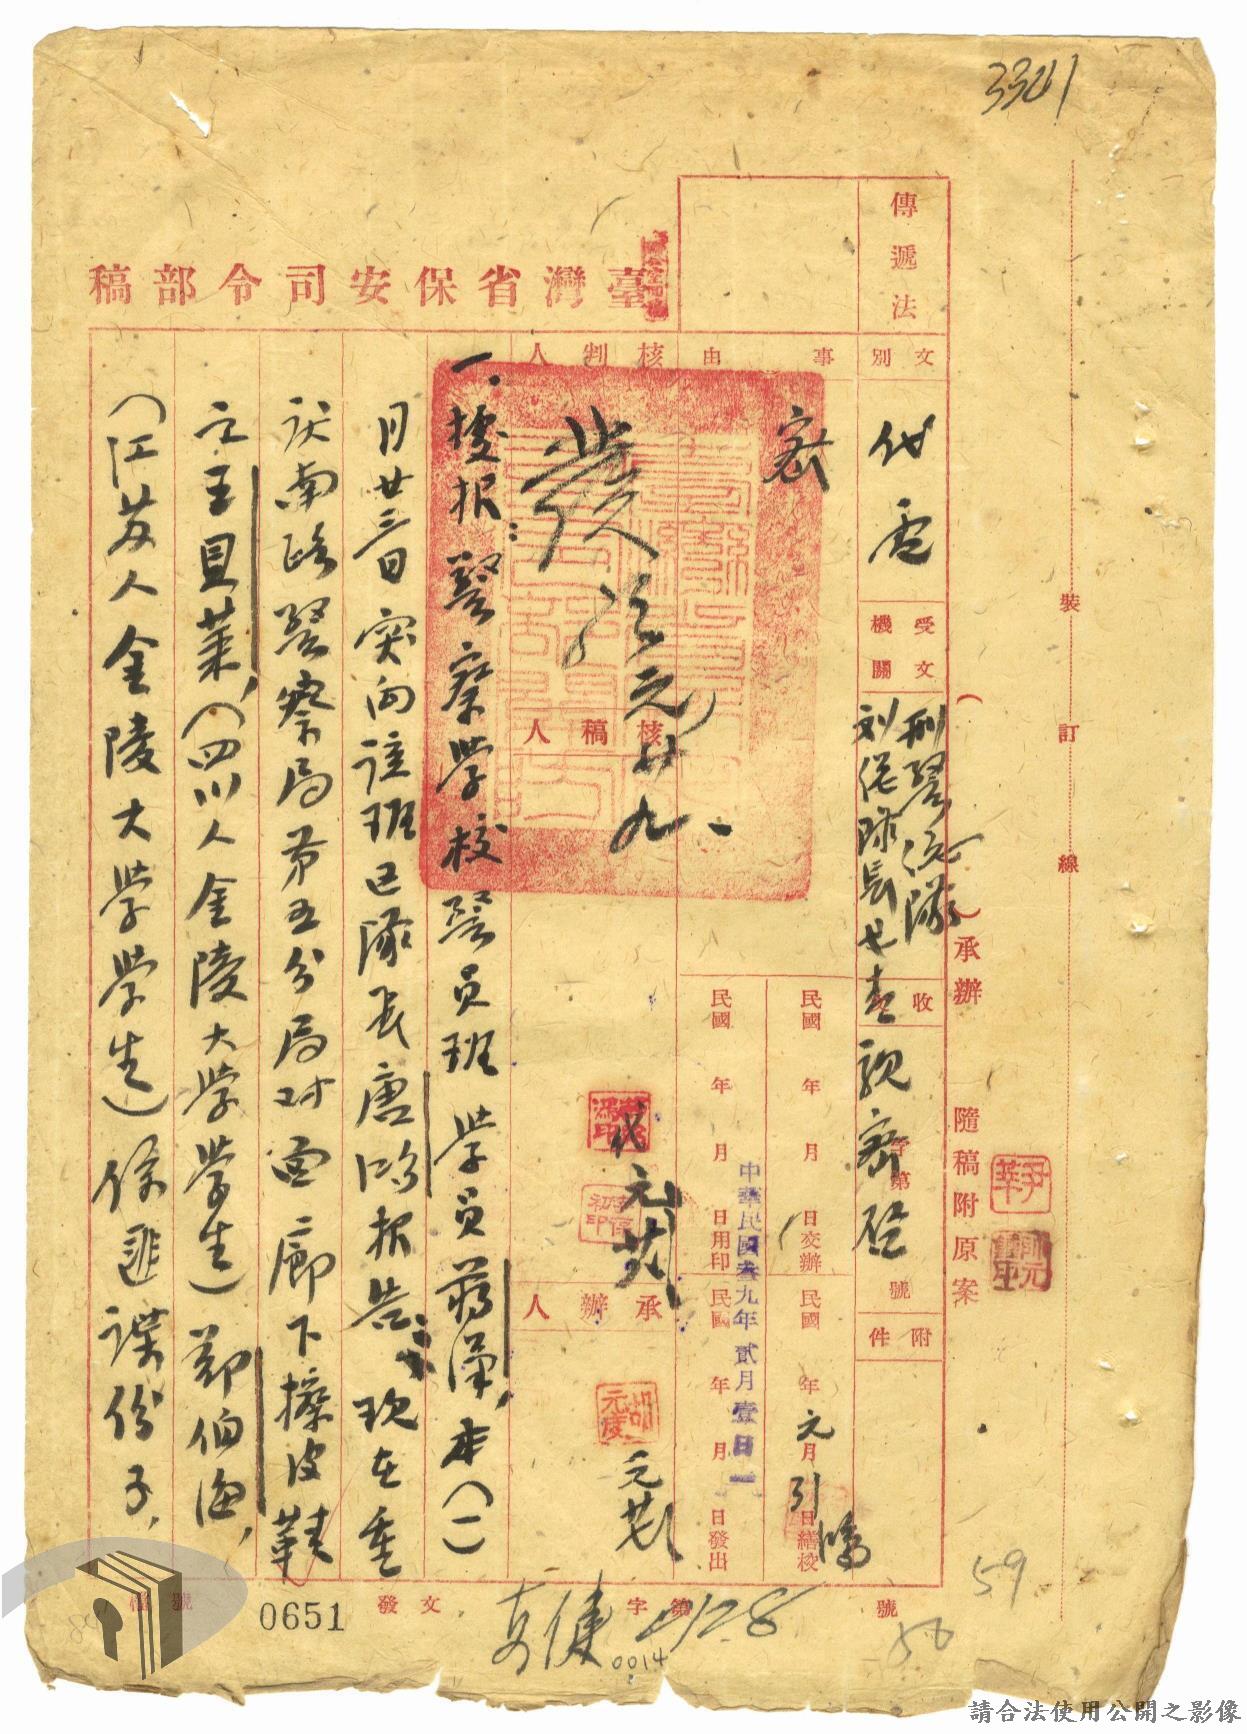 3341
裝訂線
（　）承辦　隨稿附原案
臺灣省保安司令部稿
傳遞法
文別
代電
受文機關
刑警總隊
刘總隊長
親密啓
收
字第
號
附件
事由
密
民國　年　月　日交辦
民國　年元月引日繕校
民國　年　月　日用印
民國　年　月　日發出
中華民國叁九年貳月壹日
核判人
發
元廿九
核稿人
代
元
承辦人
元
一、據报：警察學校警員班學員蔣澤，本（一）
月廿三日突向該班区隊長唐鴻报告：现在重
庆南路警察局第五分局对面廊下擦皮鞋
之王貝莱，（四川人金陵大学學生）郑伯海，
（江苏人金陵大学学生）係匪諜份子，
檔號
0651
發文
字第2128號
0014
59
58
請合法使用公開之影像